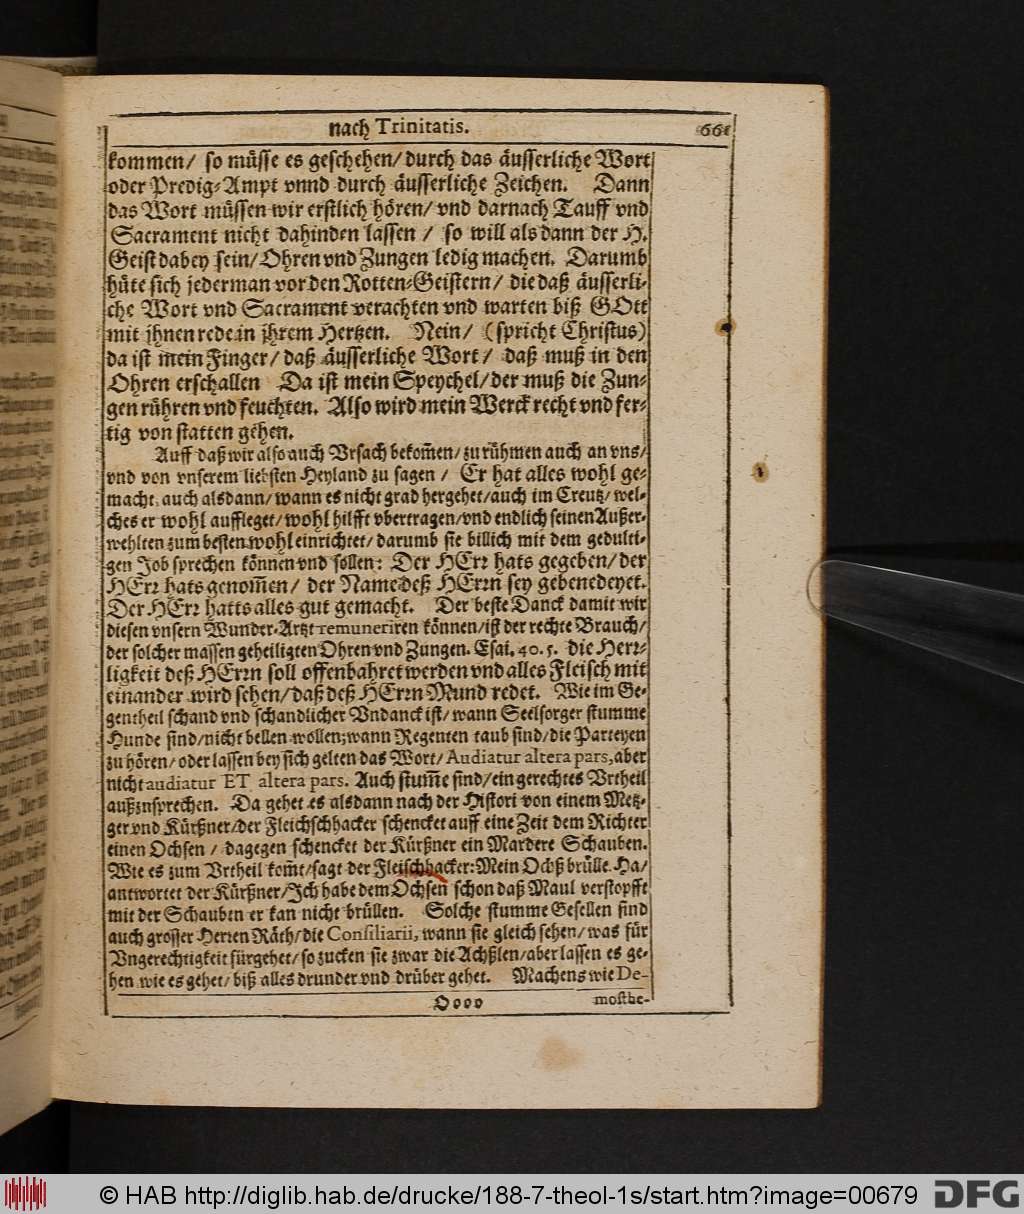 nach Trinitatis. 661
kommen/ so müsse es geschehen/ durch das äusserliche Wort
oder Predig-Ampt vnnd durch äusserliche Zeichen. Dann
das Wort müssen wir erstlich hören/ vnd darnach Tauff vnd
Sacrament nicht dahinden lassen / so will als dann der H.
Geist dabey sein/ Ohren vnd Zungen ledig machen. Darumb
hüte sich jederman vor den Rotten-Geistern/ die daß äusserli-
che Wort vnd Sacrament verachten vnd warten biß GOtt
mit jhnen rede in jhrem Hertzen. Nein/ (spricht Christus)
da ist mein Finger/ daß äusserliche Wort/ daß muß in den
Ohren erschallen Da ist mein Speychel/ der muß die Zun-
gen rühren vnd feuchten. Also wird mein Werck recht vnd fer-
tig von statten gehen.
Auff daß wir also auch Vrsach bekom̃en/ zu rühmen auch an vns/
vnd von vnserem liebsten Heyland zu sagen / Er hat alles wohl ge-
macht, auch alsdann/ wann es nicht grad hergehet/ auch im Creutz/ wel-
ches er wohl auffleget/ wohl hilfft vbertragen/ vnd endlich seinen Außer-
wehlten zum besten wohl einrichtet/ darumb sie billich mit dem gedulti-
gen Job sprechen können vnd sollen: Der HErr hats gegeben/ der
HErr hats genom̃en/ der Name deß HErrn sey gebenedeyet.
Der HErr hatts alles gut gemacht. Der beste Danck damit wir
diesen vnsern Wunder-Artzt remuneriren können/ ist der rechte Brauch/
der solcher massen geheiligten Ohren vnd Zungen. Esai. 40. 5. die Herr-
ligkeit deß HErrn soll offenbahret werden vnd alles Fleisch mit
einander wird sehen/ daß deß HErrn Mund redet. Wie im Ge-
gentheil schand vnd schandlicher Vndanck ist/ wann Seelsorger stumme
Hunde sind/ nicht bellen wollen; wann Regenten taub sind/ die Parteyen
zu hören/ oder lassen bey sich gelten das Wort/ Audiatur altera pars, aber
nicht audiatur ET altera pars. Auch stum̃e sind/ ein gerechtes Vrtheil
außznsprechen. Da gehet es alsdann nach der Histori von einem Metz-
ger vnd Kürßner/ der Fleichschhacker schencket auff eine Zeit dem Richter
einen Ochsen / dagegen schencket der Kürßner ein Mardere Schauben.
Wie es zum Vrtheil kom̃t/ sagt der Fleischhacker: Mein Ochß brülle. Ha/
antwortet der Kürßner/ Ich habe dem Ochsen schon daß Maul verstopfft
mit der Schauben er kan nicht brüllen. Solche stumme Gesellen sind
auch grosser Herren Räth/ die Consiliarii, wann sie gleich sehen/ was für
Vngerechtigkeit fürgehet/ so zucken sie zwar die Achßlen/ aber lassen es ge-
hen wie es gehet/ biß alles drunder vnd drüber gehet. Machens wie De-
Oooo mosthe-
© HAB http://diglib.hab.de/drucke/188-7-theol-1s/start.htm?image=00679 DFG